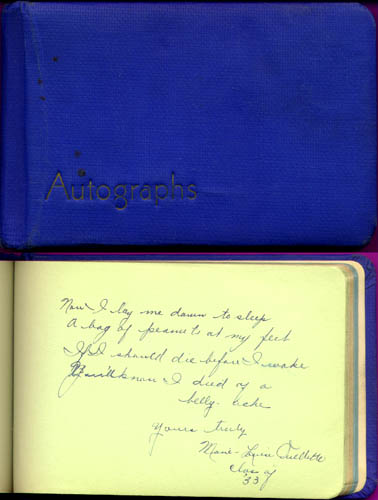 Autographs
Now I lay me down to sleep
A bag of peanuts at my feet
If I should die before I wake
You'll know I died of a
belly-ache
Yours truly
Marie-Louise
Class of
'33